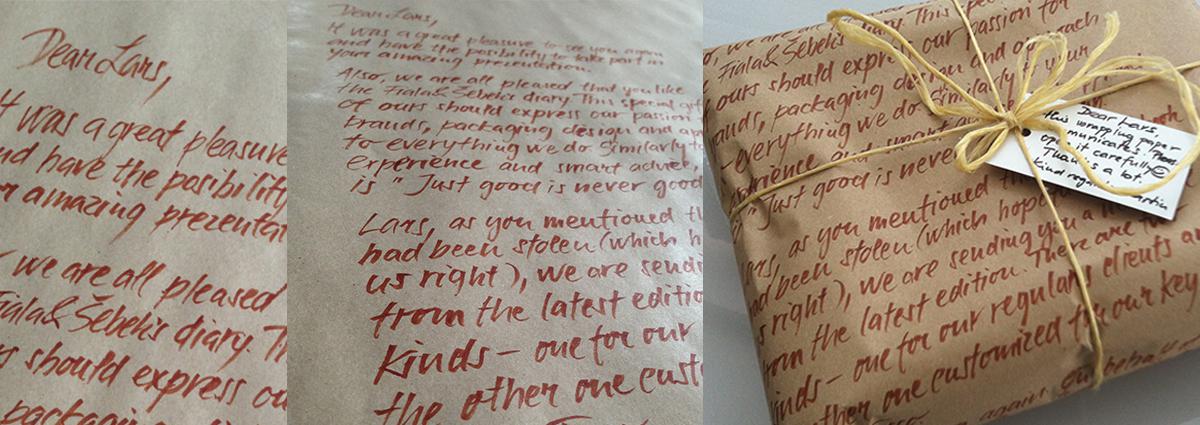 Dear Lars,
It was a great pleasure
and have the posibility
amazing prezentat
we are all pleased
Fiala&Šebek's diary. Th
should express ou
packaging
Dear Lars,
It was a great pleasure to see you again
and have the posibility to take part in
your amazing prezentation.
Also, we are all pleased that you like
the Fiala&Šebek's diary. This special gift
of ours should express our passion
brands, packaging design and ap
to everything we do. Similarly to
experience and smart advice,
is "Just good is never good
Lars, as you mentioned th
had been stolen (which h
us right), we are sendi
from the latest editio
kinds - one for our
the other one custo
we are all pleased This spec
Fiala&Šebek's our passion for
ours should express
ands, packaging design and approach
everything we do. Similarly to your
experience and smart
"Just good is never
Lars, as you mentioned
had been stolen (which hop
s right), we are sending you a n
from the latest edition. There are
kinds - one for our regular clients a
other one customized for our key
again
Dear Lars,
this wrapping paper
open it carefully
Thanks a lot.
kind regards, Martin